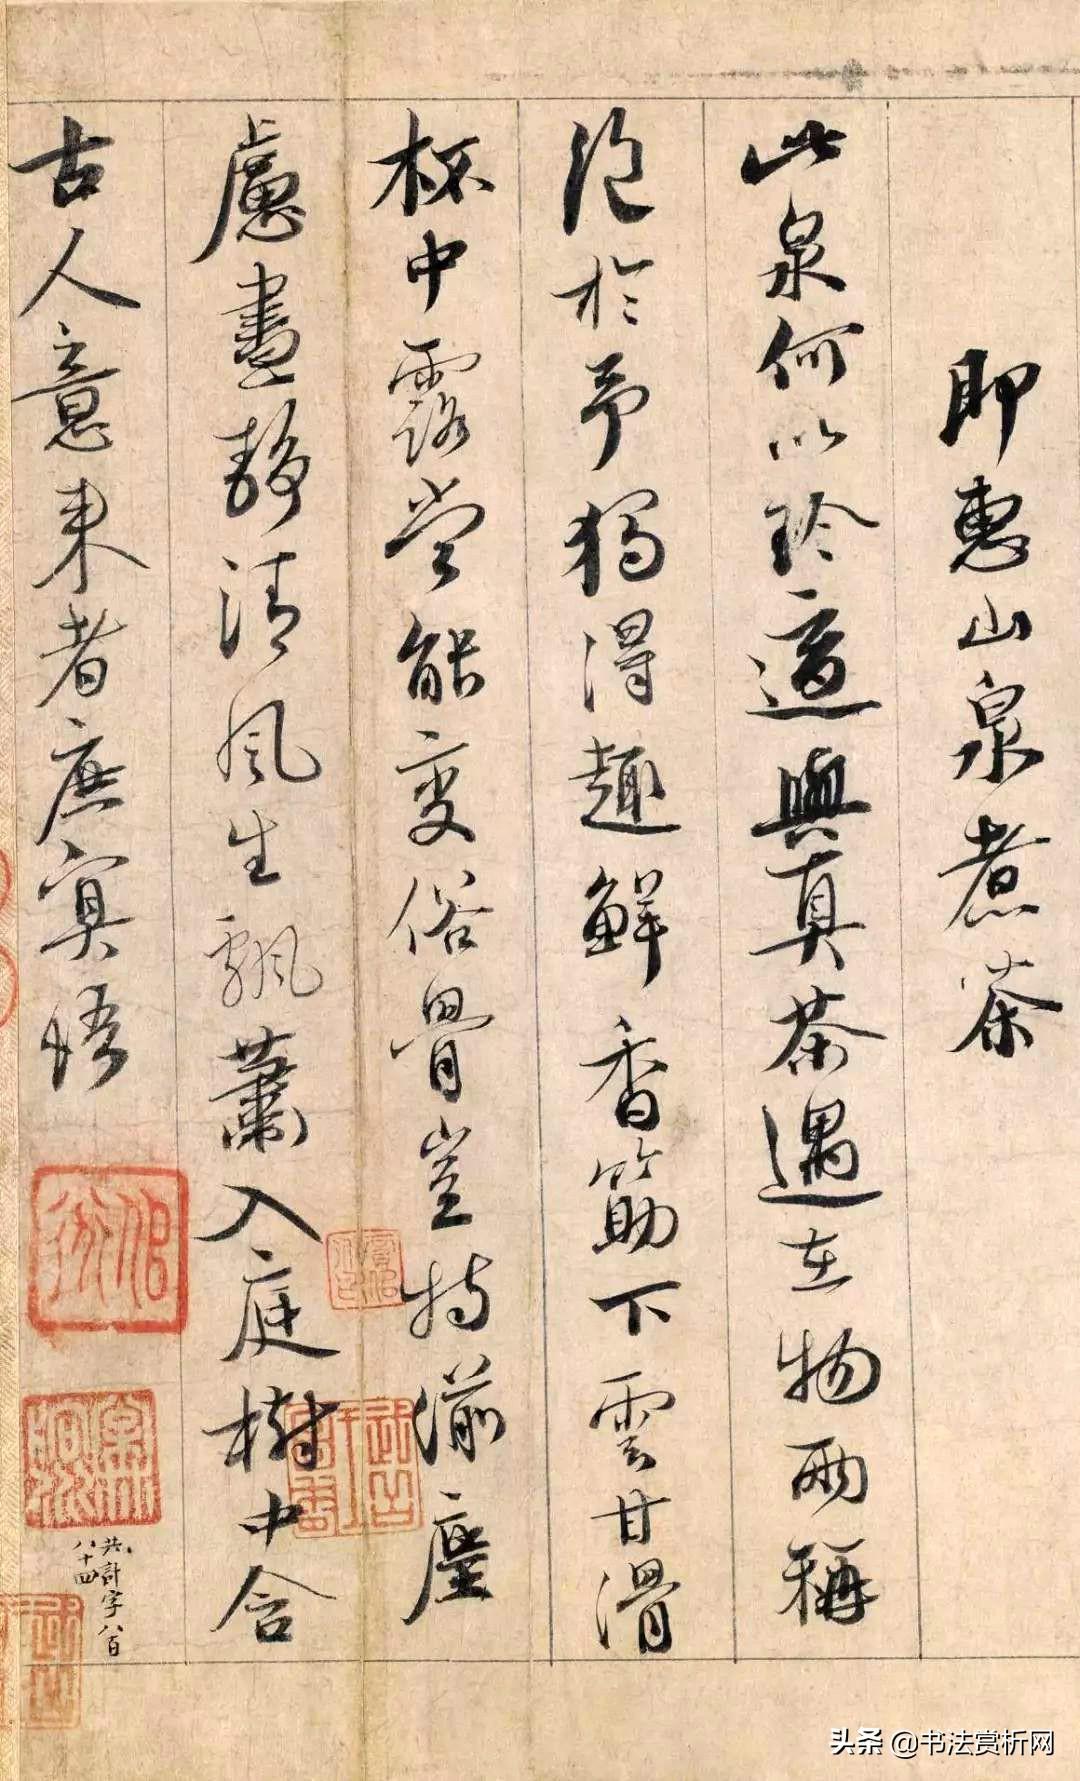 即惠山泉煮茶
此泉何以珎適與真茶遇在物兩稱
絕於予獨得趣鮮香筯下雲甘滑
杯中露當能變俗骨豈特湔塵
慮晝靜清風生飄蕭入庭樹中含
古人意來者庶冥悟
共計字八百
八十四
头条 @书法赏析网